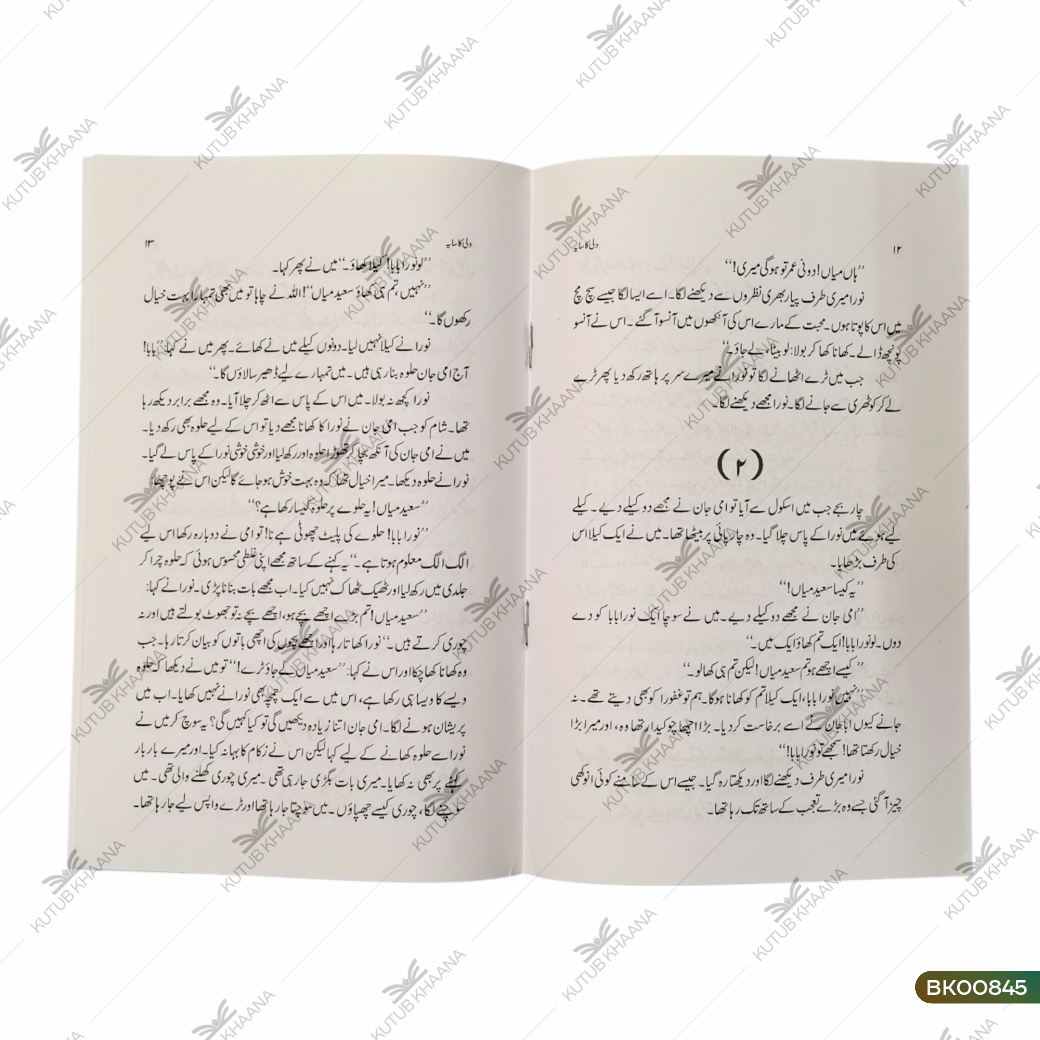 ۱۲
ولی کا سایہ
’’ہاں میاں! دونی عمر تو ہوگی میری!‘‘
نورا میری طرف پیار بھری نظروں سے دیکھنے لگا۔ اسے ایسا لگا جیسے سچ مچ
میں اس کا پوتا ہوں۔ محبت کے مارے اس کی آنکھوں میں آنسو آ گئے۔ اس نے آنسو
پونچھ ڈالے۔ کھانا کھا کر بولا: لو بیٹا، لے جاؤ۔‘‘
جب میں ٹرے اٹھانے لگا تو نورا نے میرے سر پر ہاتھ رکھ دیا پھر ٹرے
لے کر کوٹھری سے جانے لگا۔ نورا مجھے دیکھنے لگا۔
(۲)
چار بجے جب میں اسکول سے آیا تو امی جان نے مجھے دو کیلے دیے۔ کیلے
لیے ہوئے میں نورا کے پاس چلا گیا۔ وہ چارپائی پر بیٹھا تھا۔ میں نے ایک کیلا اس
کی طرف بڑھایا۔
’’یہ کیسا سعید میاں!‘‘
’’امی جان نے مجھے دو کیلے دیے۔ میں نے سوچا ایک نورا بابا کو دے
دوں۔ لو نورا بابا! ایک تم کھاؤ ایک میں۔‘‘
’’کیسے اچھے ہو تم سعید میاں! لیکن تم ہی کھالو۔‘‘
’’نہیں نورا بابا، ایک کیلا تم کو کھانا ہوگا۔ ہم تو غفورا کو بھی دیتے تھے۔ نہ
جانے کیوں ابا جان نے اسے برخاست کر دیا۔ بڑا اچھا چوکیدار تھا وہ، اور میرا بڑا
خیال رکھتا تھا! سمجھے تو نورا بابا!‘‘
نورا میری طرف دیکھنے لگا اور دیکھتا رہ گیا۔ جیسے اس کے سامنے کوئی انوکھی
چیز آ گئی جسے وہ بڑے تعجب کے ساتھ تک رہا تھا۔
ولی کا سایہ
۱۳
’’لو نورا بابا! کیلا کھاؤ۔‘‘ میں نے پھر کہا۔
’’نہیں، تم ہی کھاؤ سعید میاں‘‘! اللہ نے چاہا تو میں بھی تمہارا بہت خیال
رکھوں گا۔‘‘
نورا نے کیلا نہیں لیا۔ دونوں کیلے میں نے کھائے۔ پھر میں نے کہا: ’’بابا!
آج امی جان حلوہ بنا رہی ہیں۔ میں تمہارے لیے ڈھیر سا لاؤں گا۔‘‘
نورا کچھ نہ بولا۔ میں اس کے پاس سے اٹھ کر چلا آیا۔ وہ مجھے برابر دیکھ رہا
تھا۔ شام کو جب امی جان نے نورا کا کھانا مجھے دیا تو اس کے لیے حلوہ بھی رکھ دیا۔
میں نے امی جان کی آنکھ بچا کر تھوڑا حلوہ اور رکھ لیا اور خوشی خوشی نورا کے پاس لے گیا۔
نورا نے حلوہ دیکھا۔ میرا خیال تھا کہ وہ بہت خوش ہو جائے گا لیکن اس نے پوچھا:
’’سعید میاں! یہ حلوے پر حلوہ کیسا رکھا ہے؟‘‘
’’نورا بابا! حلوے کی پلیٹ چھوٹی ہے نا! تو امی نے دوبارہ رکھا اس لیے
الگ الگ معلوم ہوتا ہے۔‘‘ یہ کہنے کے ساتھ مجھے اپنی غلطی محسوس ہوئی کہ حلوہ چرا کر
جلدی میں رکھ لیا اور ٹھیک ٹھاک نہیں کیا۔ اب مجھے بات بنانا پڑی۔ نورا نے کہا:
’’سعید میاں! تم بڑے اچھے بچے ہو، اچھے بچے نہ تو جھوٹ بولتے ہیں اور نہ
چوری کرتے ہیں۔‘‘ نورا کھاتا رہا اور اچھے بچوں کی اچھی باتوں کو بیان کرتا رہا۔ جب
وہ کھانا کھا چکا اور اس نے کہا: ’’سعید میاں لے جاؤ ٹرے!‘‘ تو میں نے دیکھا کہ حلوہ
ویسے کا ویسا ہی رکھا ہے، اس میں سے ایک چمچہ بھی نورا نے نہیں کھایا۔ اب میں
پریشان ہونے لگا۔ امی جان اتنا زیادہ دیکھیں گی تو کیا کہیں گی؟ یہ سوچ کر میں نے
نورا سے حلوہ کھانے کے لیے کہا لیکن اس نے زکام کا بہانہ کیا۔ اور میرے بار بار
کہنے پر بھی نہ کھایا۔ میری بات بگڑی جا رہی تھی۔ میری چوری کھلنے والی تھی۔ میں
سوچنے لگا، چوری کیسے چھپاؤں۔ میں سوچتا جا رہا تھا اور ٹرے واپس لیے جا رہا تھا۔
KUTUB KHAANA
BK00845